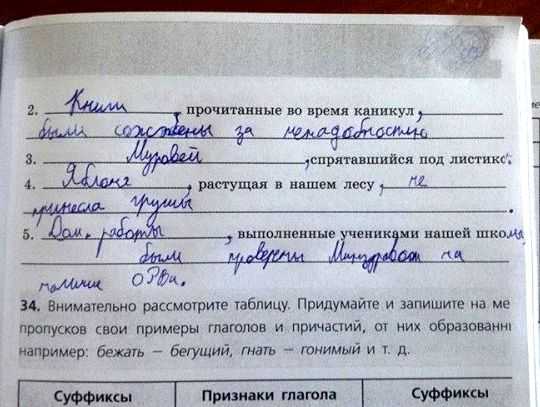 2. Книги, прочитанные во время каникул,
были сожжены за ненадобностью
3. Муравей, спрятавшийся под листико
4. Яблоня, растущая в нашем лесу, не
принесла груши.
5. Дом. работы, выполненные учениками нашей школы,
были проверены Минздравом на
наличие ОРВи.
34. Внимательно рассмотрите таблицу. Придумайте и запишите на ме
пропусков свои примеры глаголов и причастий, от них образованн
например: бежать — бегущий, гнать — гонимый и т. д.
Суффиксы Признаки глагола Суффиксы